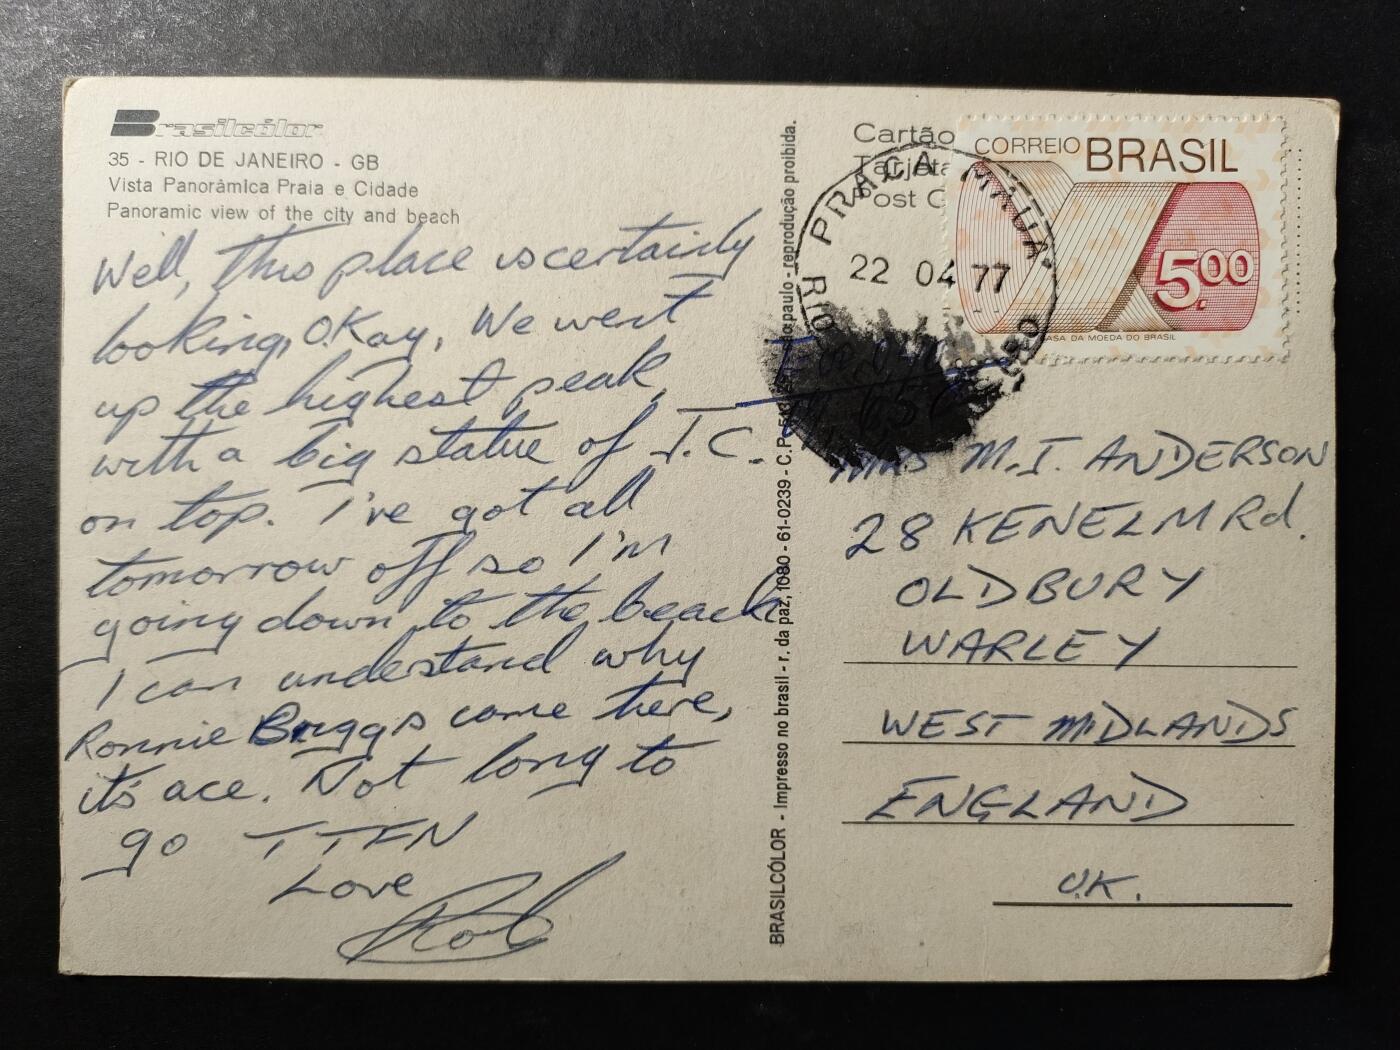 Brasilcólor
35 - RIO DE JANEIRO - GB
Vista Panorâmica Praia e Cidade
Panoramic view of the city and beach
Well, this place is certainly
looking, OKay, We went
up the highest peak,
with a big statue of J.C.
on top. I've got all
tomorrow off so I'm
going down to the beach
I can understand why
Ronnie Briggs came here,
it's ace. Not long to
go TTFN
Love
Rob
BRASILCÓLOR - Impresso no brasil - r. da paz, 1080 - 61-0239 - C.P. paulo - reprodução proibida.
Cartão
Tarjeta
Post C
CORREIO BRASIL
5.00
CASA DA MOEDA DO BRASIL
PRAÇA MAUÁ
22 04 77
RIO
MRS M.I. ANDERSON
28 KENELM Rd.
OLDBURY
WARLEY
WEST MIDLANDS
ENGLAND
U.K.